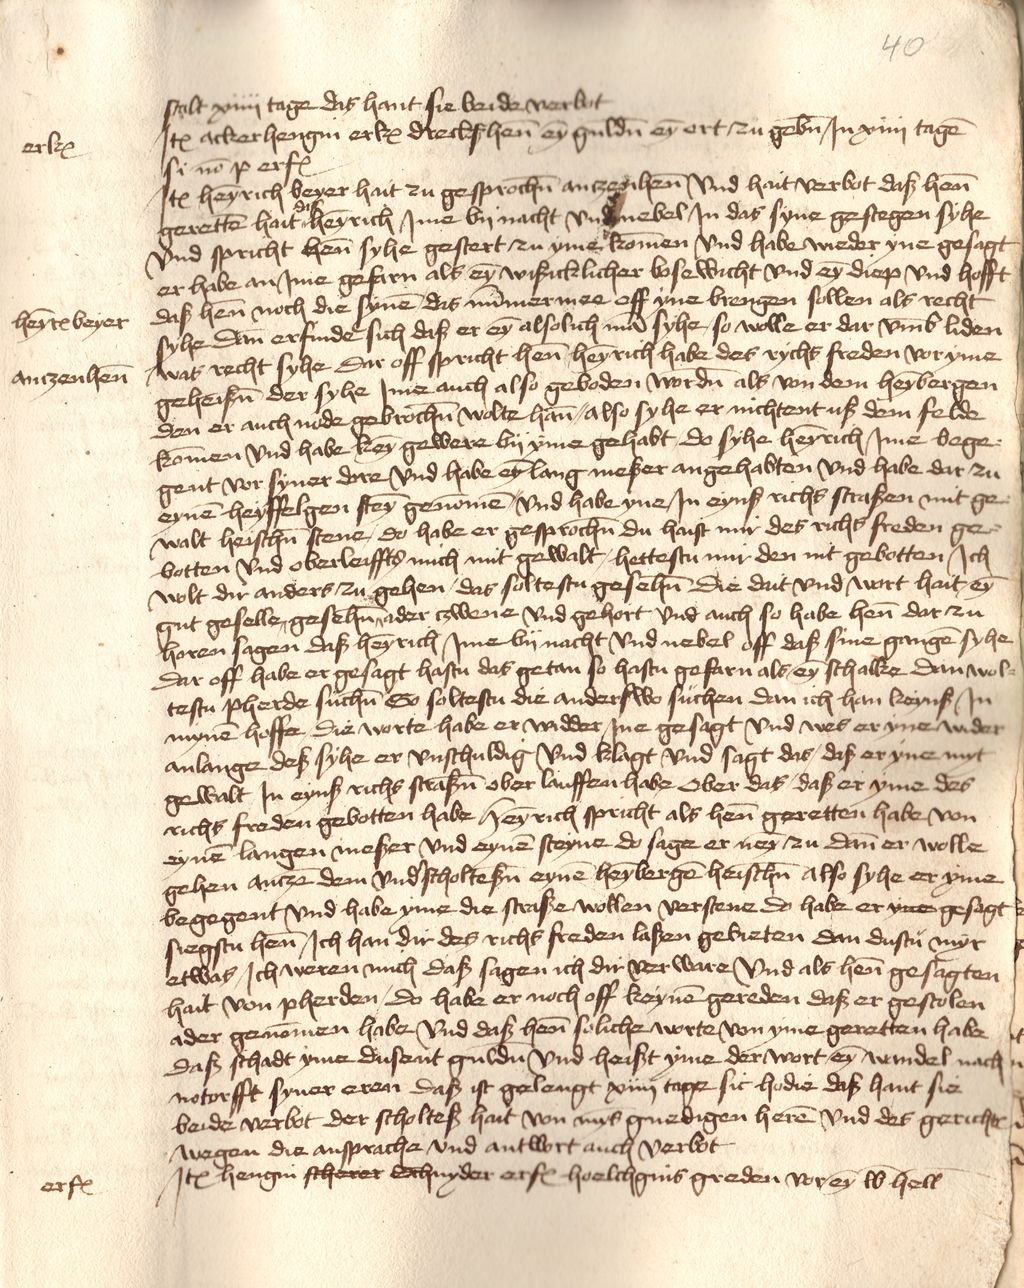 40
salt xiiii tage das hant sie beide verbot
erkͯ
Itͯ ackerhengin erkͯ dreckshen̄ ey̅ guldn̄ ey̅ ort zu gebn̄ In xiiii tagē
si nō p erfͯ
Itͯ heyrich beyer hait zu gesprochn̄ anczenhen̄ vnd hait verbot daß hen̄
gerettē hait heyrich Ime bij nacht vnd nebel In das syne gestegen syhe
vnd spricht hen̄ syhe gestert zu yme kom̄en vnd habe wieder yne gesagt
er habe an Ime gefarn als ey̅ wißticklicher bosewicht vnd ey̅ diep vnd hofft
daß hen̄ noch die synē das nūmermee off yne brengen sollen als recht
heyrͯ beyer
syhe dan̄ erfinde sich daß er ey̅ alsolich mā syhe so wolle er dar vmb liden
was recht syhe dar off spricht hen̄ heyrich habe des rychs freden vor yme
anczenhen̄
geheisn̄ der syhe Ime auch also geboden wordn̄ als von dem heybergen
den er auch node gebrochn̄ wolte han / also syhe er nichtent uß dem felde
kom̄en vnd habe key̅ gewere bij yme gehabt do syhe heyrich Ime bege-
gent vor syner dore vnd habe ey̅ lang meßer angehabten vnd habe dar zu
eynē heyffelgen stey̅ genom̄e vnd habe yne In eynß richs straßen mit ge-
walt heischn̄ stene / do habe er gesprochn̄ du haist mir des richs freden ge-
botten vnd oberleiffts mich mit gewalt / hettestu mir den nit gebotten / Ich
wolt dir anders zu gehen / das soltestu gesehn̄ die dait vnd wort hait ey̅
gut geselle gesehn̄ ader czwene vnd gehort vnd auch so habe hen̄ dar zu
horen sagen daß heyrich Ime bij nacht vnd nebel off daß sine gangē syhe
dar off habe er gesagt hastu das getan so hastu gefarn als ey̅ schalke dan wol-
testu pherde suchn̄ So soltestu die anderßwo suchen dan ich han keynß In
mynē hoffe die worte habe er widder Ine gesagt vnd wes er yne wider
anlange deß syhe er vnschuldig vnd klagt vnd sagt das / daß er yne mit
gewalt In eynß richs straßn̄ ober lauffen habe ober das / daß er yme des
richs freden gebotten habe / heyrich spricht als hen̄ gerettē habe von
eynē langen meßer vnd eynē steyne do sage er ney̅ zu dan̄ er wolle
gehen ancze dem vndscholteßn̄ eynē heybergē heischn̄ also syhe er yme
begegent vnd habe yme die straße wollen verstene do habe er yme gesagt
siegstu hen̄ / Ich han dir des richs freden laßen gebieten dan dustu myr
etwas / Ich weren mich daß sagen ich dir verware vnd als hen̄ gesagten
hait von pherden / do habe er noch off keynē gereden daß er gestolen
ader genom̄en habe vnd daß hen̄ soliche worte von yme gerettē habe
daß schadt yme dusent guldn̄ vnd heißt yme der wort ey̅ wandel nach
notorfft syner eren daß ist gelengt xiiii tage sic hodie daß hant sie
beide verbot der scholteß hait von mys gnedigen herē vnd des gerichts
wegen die ansprache vnd antwort auch verbot
erfͯ
Itͯ hengin scherer schnyder erfͯ hoelchgins greden vor ey̅ lb hell